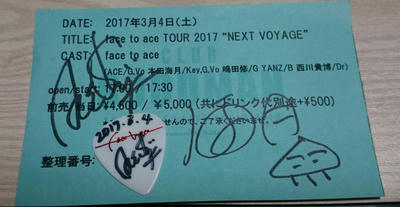 DATE: 2017年3月4日(土)
TITLE: face to ace TOUR 2017 "NEXT VOYAGE"
CAST: face to ace
(ACE/G,Vo 本田海月/Key,G,Vo 嶋田修/G YANZ/B 西川貴博/Dr)
open/start: 17:00 / 17:30
前売/当日: ¥4,500 / ¥5,000 (共にドリンク代別途+¥500)
ませんので、ご了承くださいませ。
整理番号:
2017.3.4
face to ace
海月